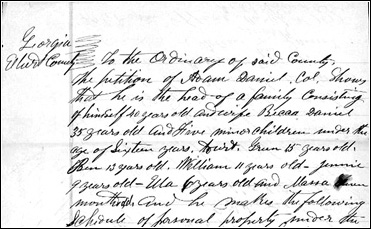 Gorgia
County
To the Ordinary of said County,
the petition of Adam Daniel, Col, Shows
that he is the head of a family Consisting
of himself 40 years old and wife Daniel
35 years old and Five minor children under the
age of Sixteen years, towit. Green 15 years old.
Ben 13 years old. William 11 years old - Jennie
9 years old - Ella years old and
months and he makes the following
Schedule of personal property under the